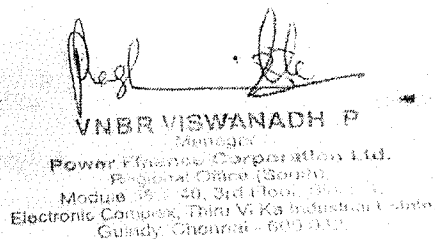 VNBR VISWANADH .P
Manager
Power Finance Corporation Ltd.
Regional Office (South)
Module 40, 3rd Floor,
Electronic Complex, Thiru Vi Ka Industrial Estate
Guindy, Chennai - 600 032.